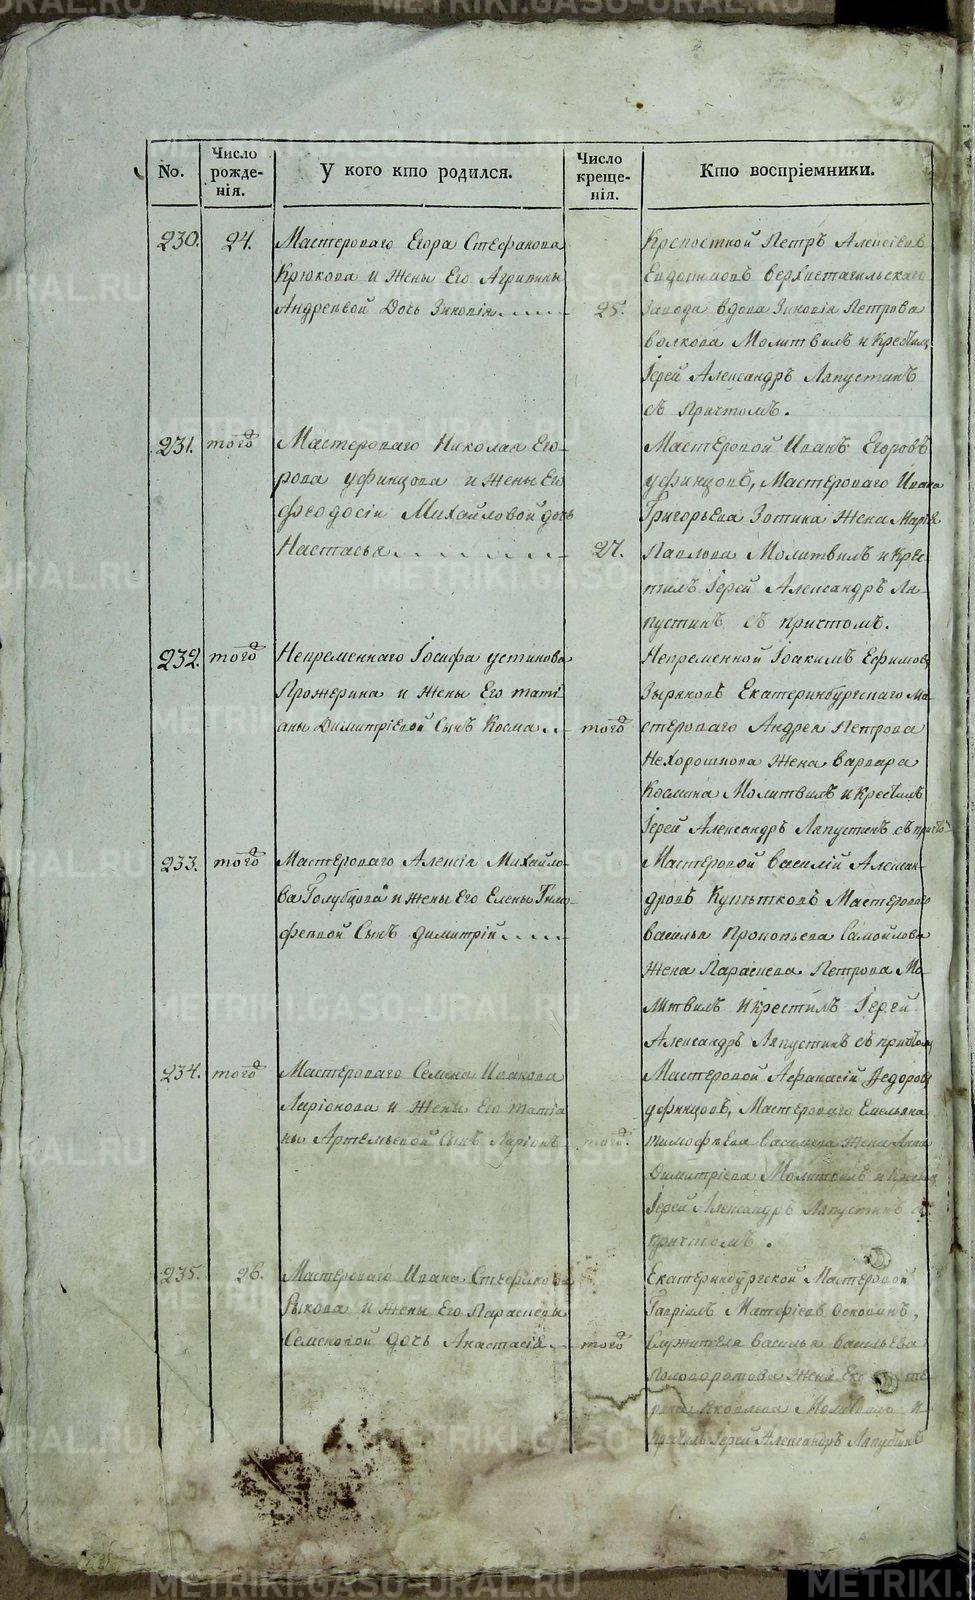 No.
Число рожде-нія.
У кого кто родился.
Число креще-нія.
Кто воспріемники.
230.
24.
Мастероваго Егора Стефанова
Крюкова и жены Его Агрипины
Андреевой дочь Зиновія
25.
Крепостной Петръ Алексеевъ
Евдокимовъ Верхнетагильскаго
Завода вдова Зиновія Петрова
Волкова Молитвилъ и Крестилъ
Іерей Александръ Ляпустинъ
съ Причтомъ.
231.
того
Мастероваго Николая Его-
рова уфинцова и жены Его
Феодосіи Михайловой дочь
Настасья
27.
Мастеровой Иванъ Егоровъ
уфинцовъ, Мастероваго Ивана
Григорьева Зотина жена Марѳа
Павлова Молитвилъ и Крес-
тилъ Іерей Александръ Ля-
пустинъ съ причтомъ.
232.
того
Непременнаго Іосифа устинова
Прожерина и жены Его таті-
аны Димитріевой Сынъ Косма
того
Непременной Іоакимъ Ефимовъ
Зыряновъ Екатеринбургскаго Ма-
стероваго Андрея Петрова
Нехорошкова жена Варвара
Космина Молитвилъ и Крестилъ
Іерей Александръ Ляпустинъ съ причто
233.
того
Мастероваго Алексія Михайло-
ва Голубцова и жены Его Елены Тимо-
феевой Сынъ димитрій
Мастеровой Василій Алексан-
дровъ Мастероваго
Василья Прокопьева Самойлова
жена Параскева Петрова Мо-
литвилъ и Крестилъ Іерей
Александръ Ляпустинъ съ причтомъ
234.
того
Мастероваго Семена Иванова
Ларіонова и жены Его татія-
ны Артемьевой Сынъ Ларіонъ
того.
Мастеровой Афанасій Федоровъ
уфинцовъ, Мастероваго Емельяна
тимофѣева Васильева жена Анна
Димитріева Молитвилъ и Крестилъ
Іерей Александръ Ляпустинъ съ
причтомъ.
235.
26.
Мастероваго Ивана Стефанова
Рыкова и жены Его Параскевы
Семеновой дочь Анастасія
того
Екатеринбургской Мастеровой
Гавріилъ Матфіевъ Осковинъ,
Служителя Василья Васильева
жена
Яковлева Молитвилъ и
Крестилъ Іерей Александръ Ляпустинъ
METRIKI.GASO-URAL.RU